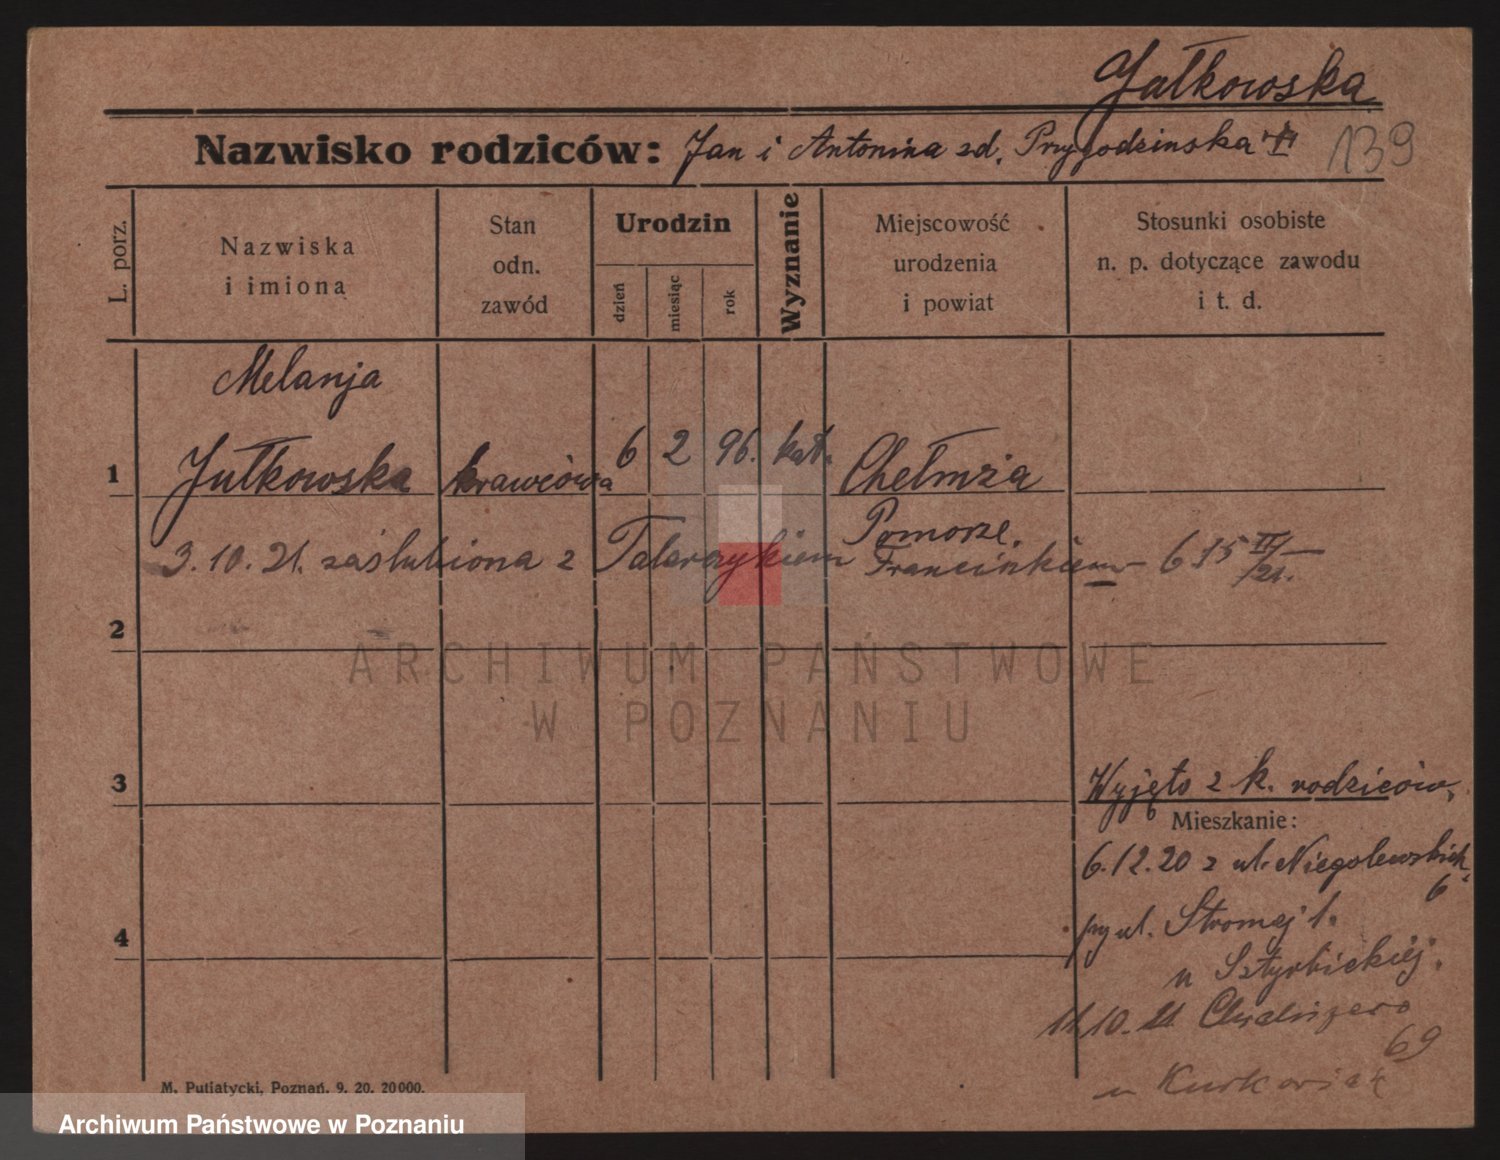 Jułkowska
Nazwisko rodziców: Jan i Antonina zd. Przygodzinska
139
L. porz.
Nazwiska
i imiona
Stan
odn.
zawód
Urodzin
dzień
miesiąc
rok
Wyznanie
Miejscowość
urodzenia
i powiat
Stosunki osobiste
n. p. dotyczące zawodu
i t. d.
Melanja
1 Jułkowska krawcowa 6 2 96. kat. Chełmża
Pomorze.
3. 10. 21. zaślubiona z Talarczykiem Franciszkiem 615 II/21.
2
3
Wyjęto z k. rodziców.
Mieszkanie:
6.12.20 z ul. Niegolewskich
6
przy ul. Stromej 1.
4
u Sztyrbickiej.
11.10.21
69
u Kurkowiak
M. Putiatycki, Poznań. 9. 20. 20000.
ARCHIWUM PAŃSTWOWE
W POZNANIU
Archiwum Państwowe w Poznaniu